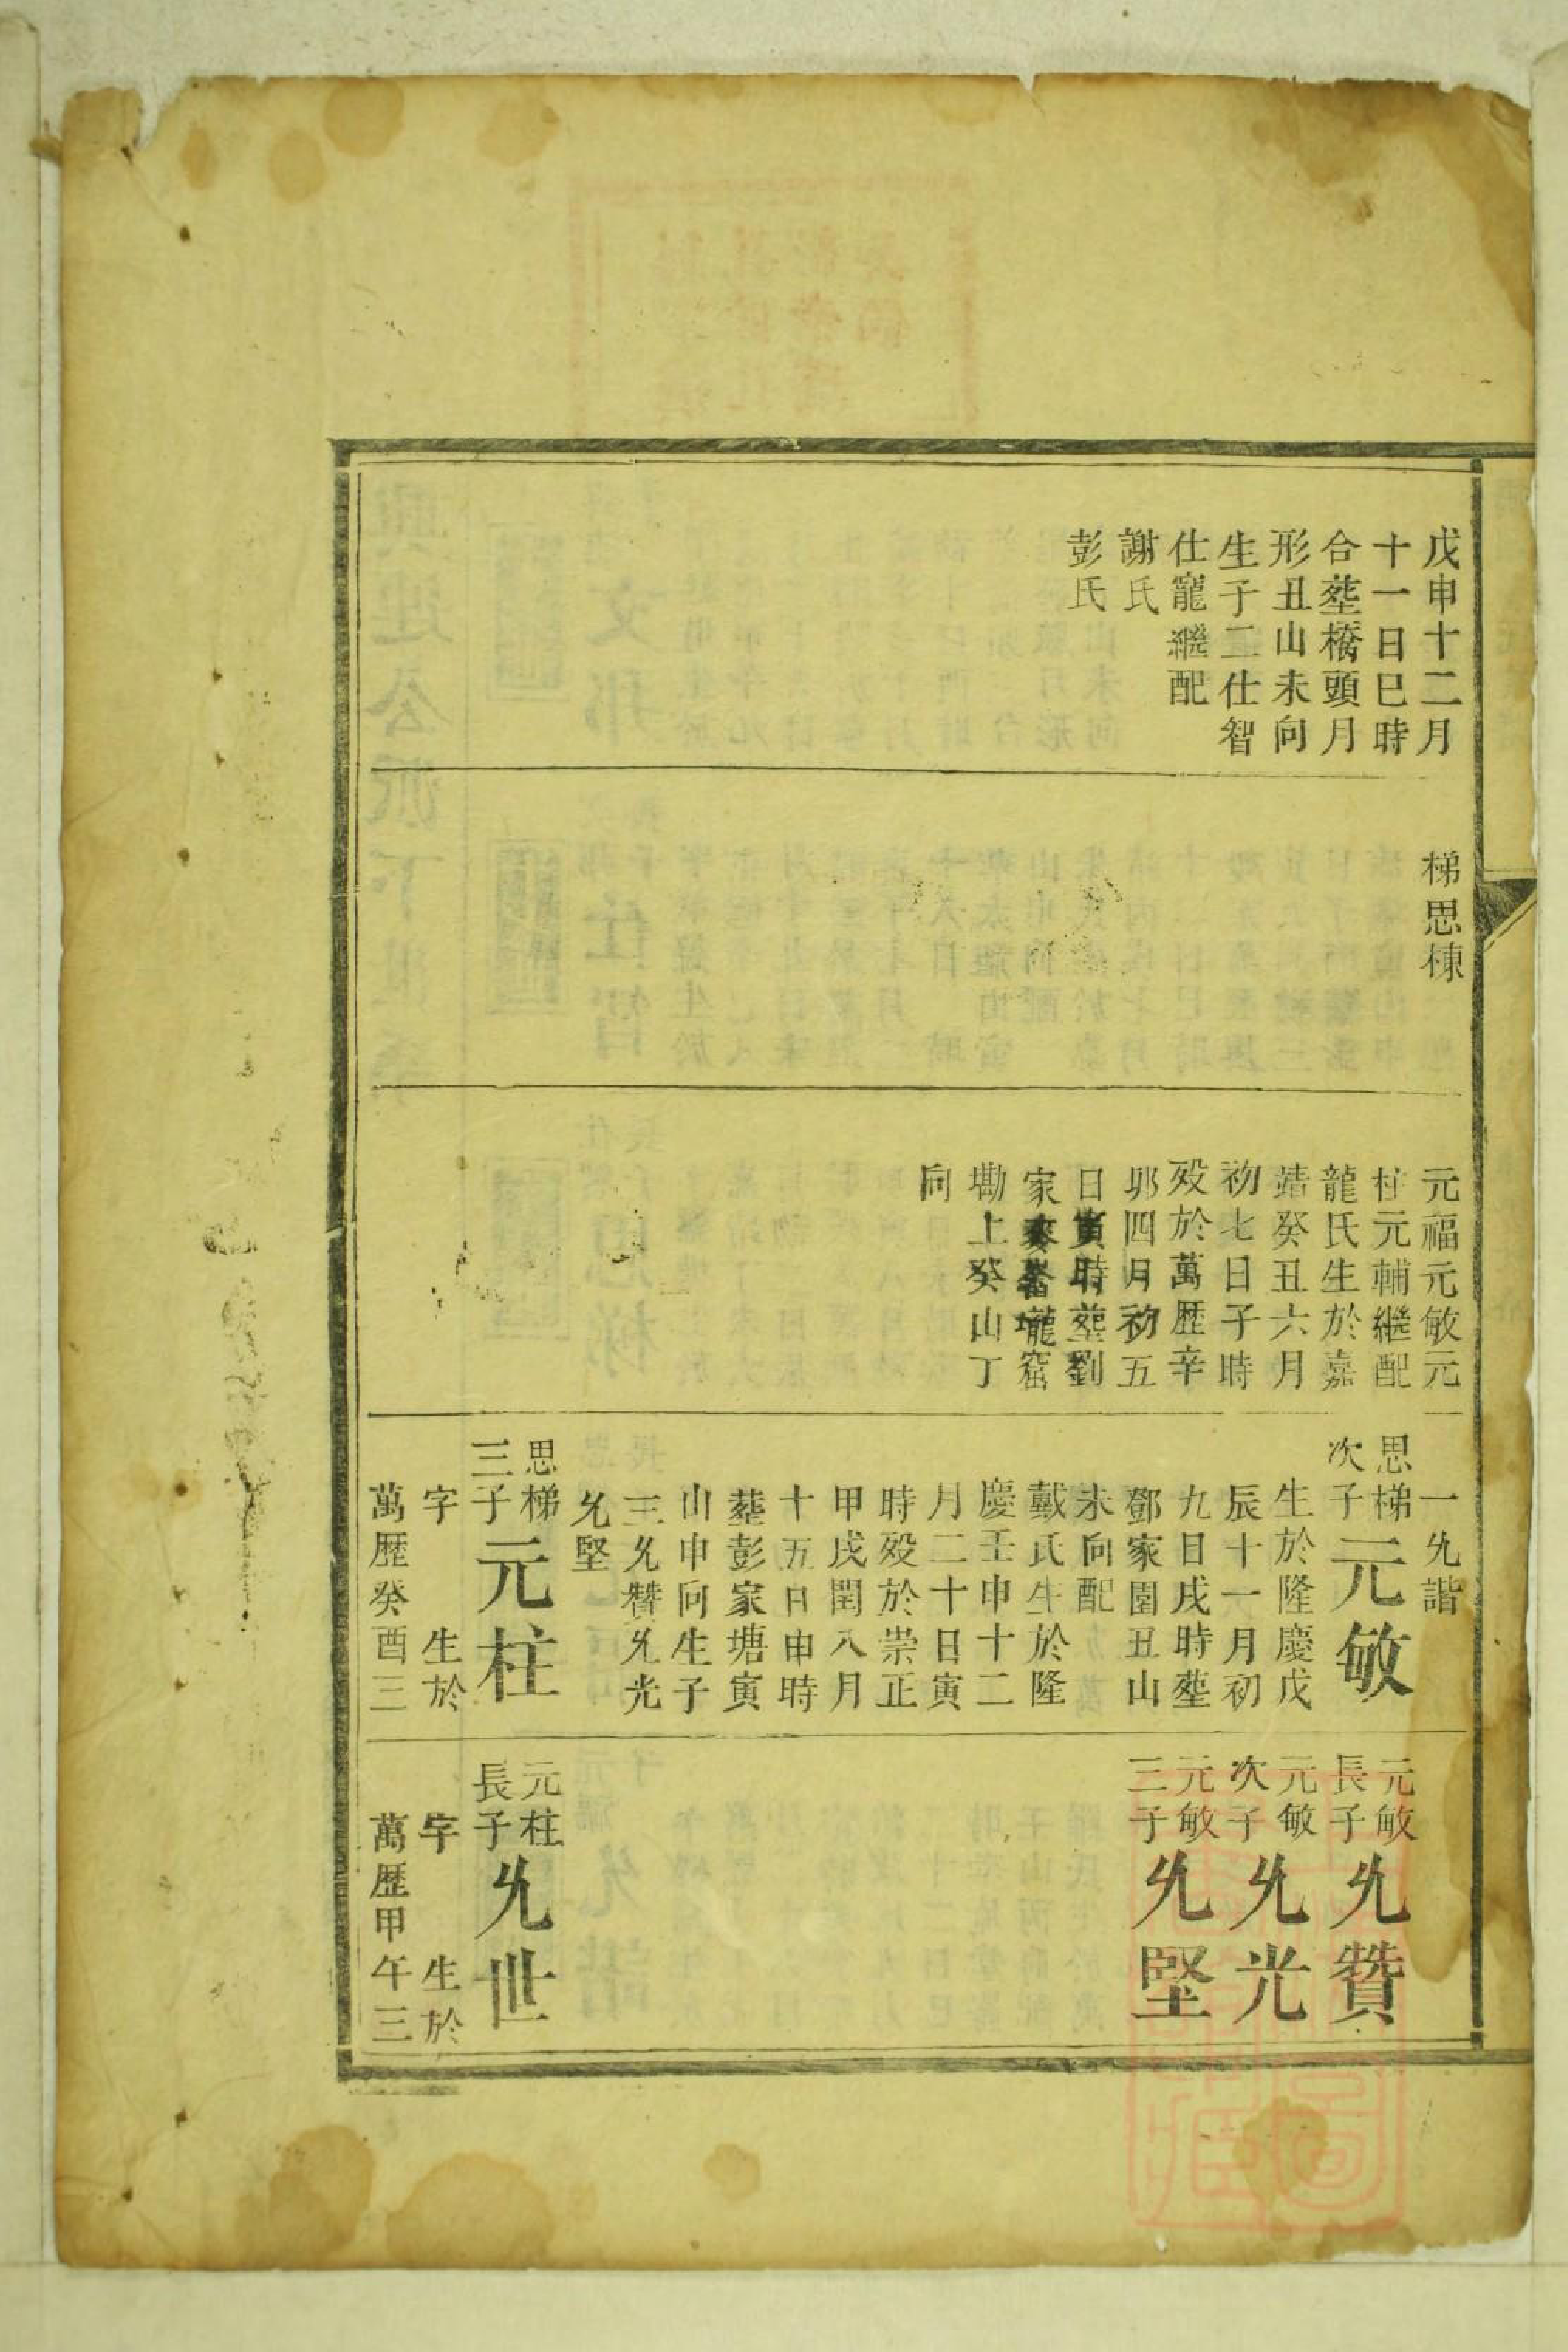 戊申十二月
十一日巳時
合塟橋頭月
形丑山未向
生子二仕智
仕寵繼配
謝氏
彭氏
梯思棟
元福元敏元
柱元輔繼配
龍氏生於嘉
靖癸丑六月
初七日子時
殁於萬歷辛
卯四月初五
日寅時塟劉
家
壠窟
塸上癸山丁
向
一允諧
思梯
次子
元敏
生於隆慶戊
辰十一月初
九日戌時塟
鄧家園丑山
未向配
戴氏生於隆
慶壬申十二
月二十日寅
時殁於崇正
甲戌閏八月
十五日申時
塟彭家塘寅
山申向生子
三允贊允光
允堅
思梯
三子
元柱
字 生於
萬歷癸酉三
元敏
長子
允贊
元敏
次子
允光
元敏
三子
允堅
元柱
長子
允世
字 生於
萬歷甲午三